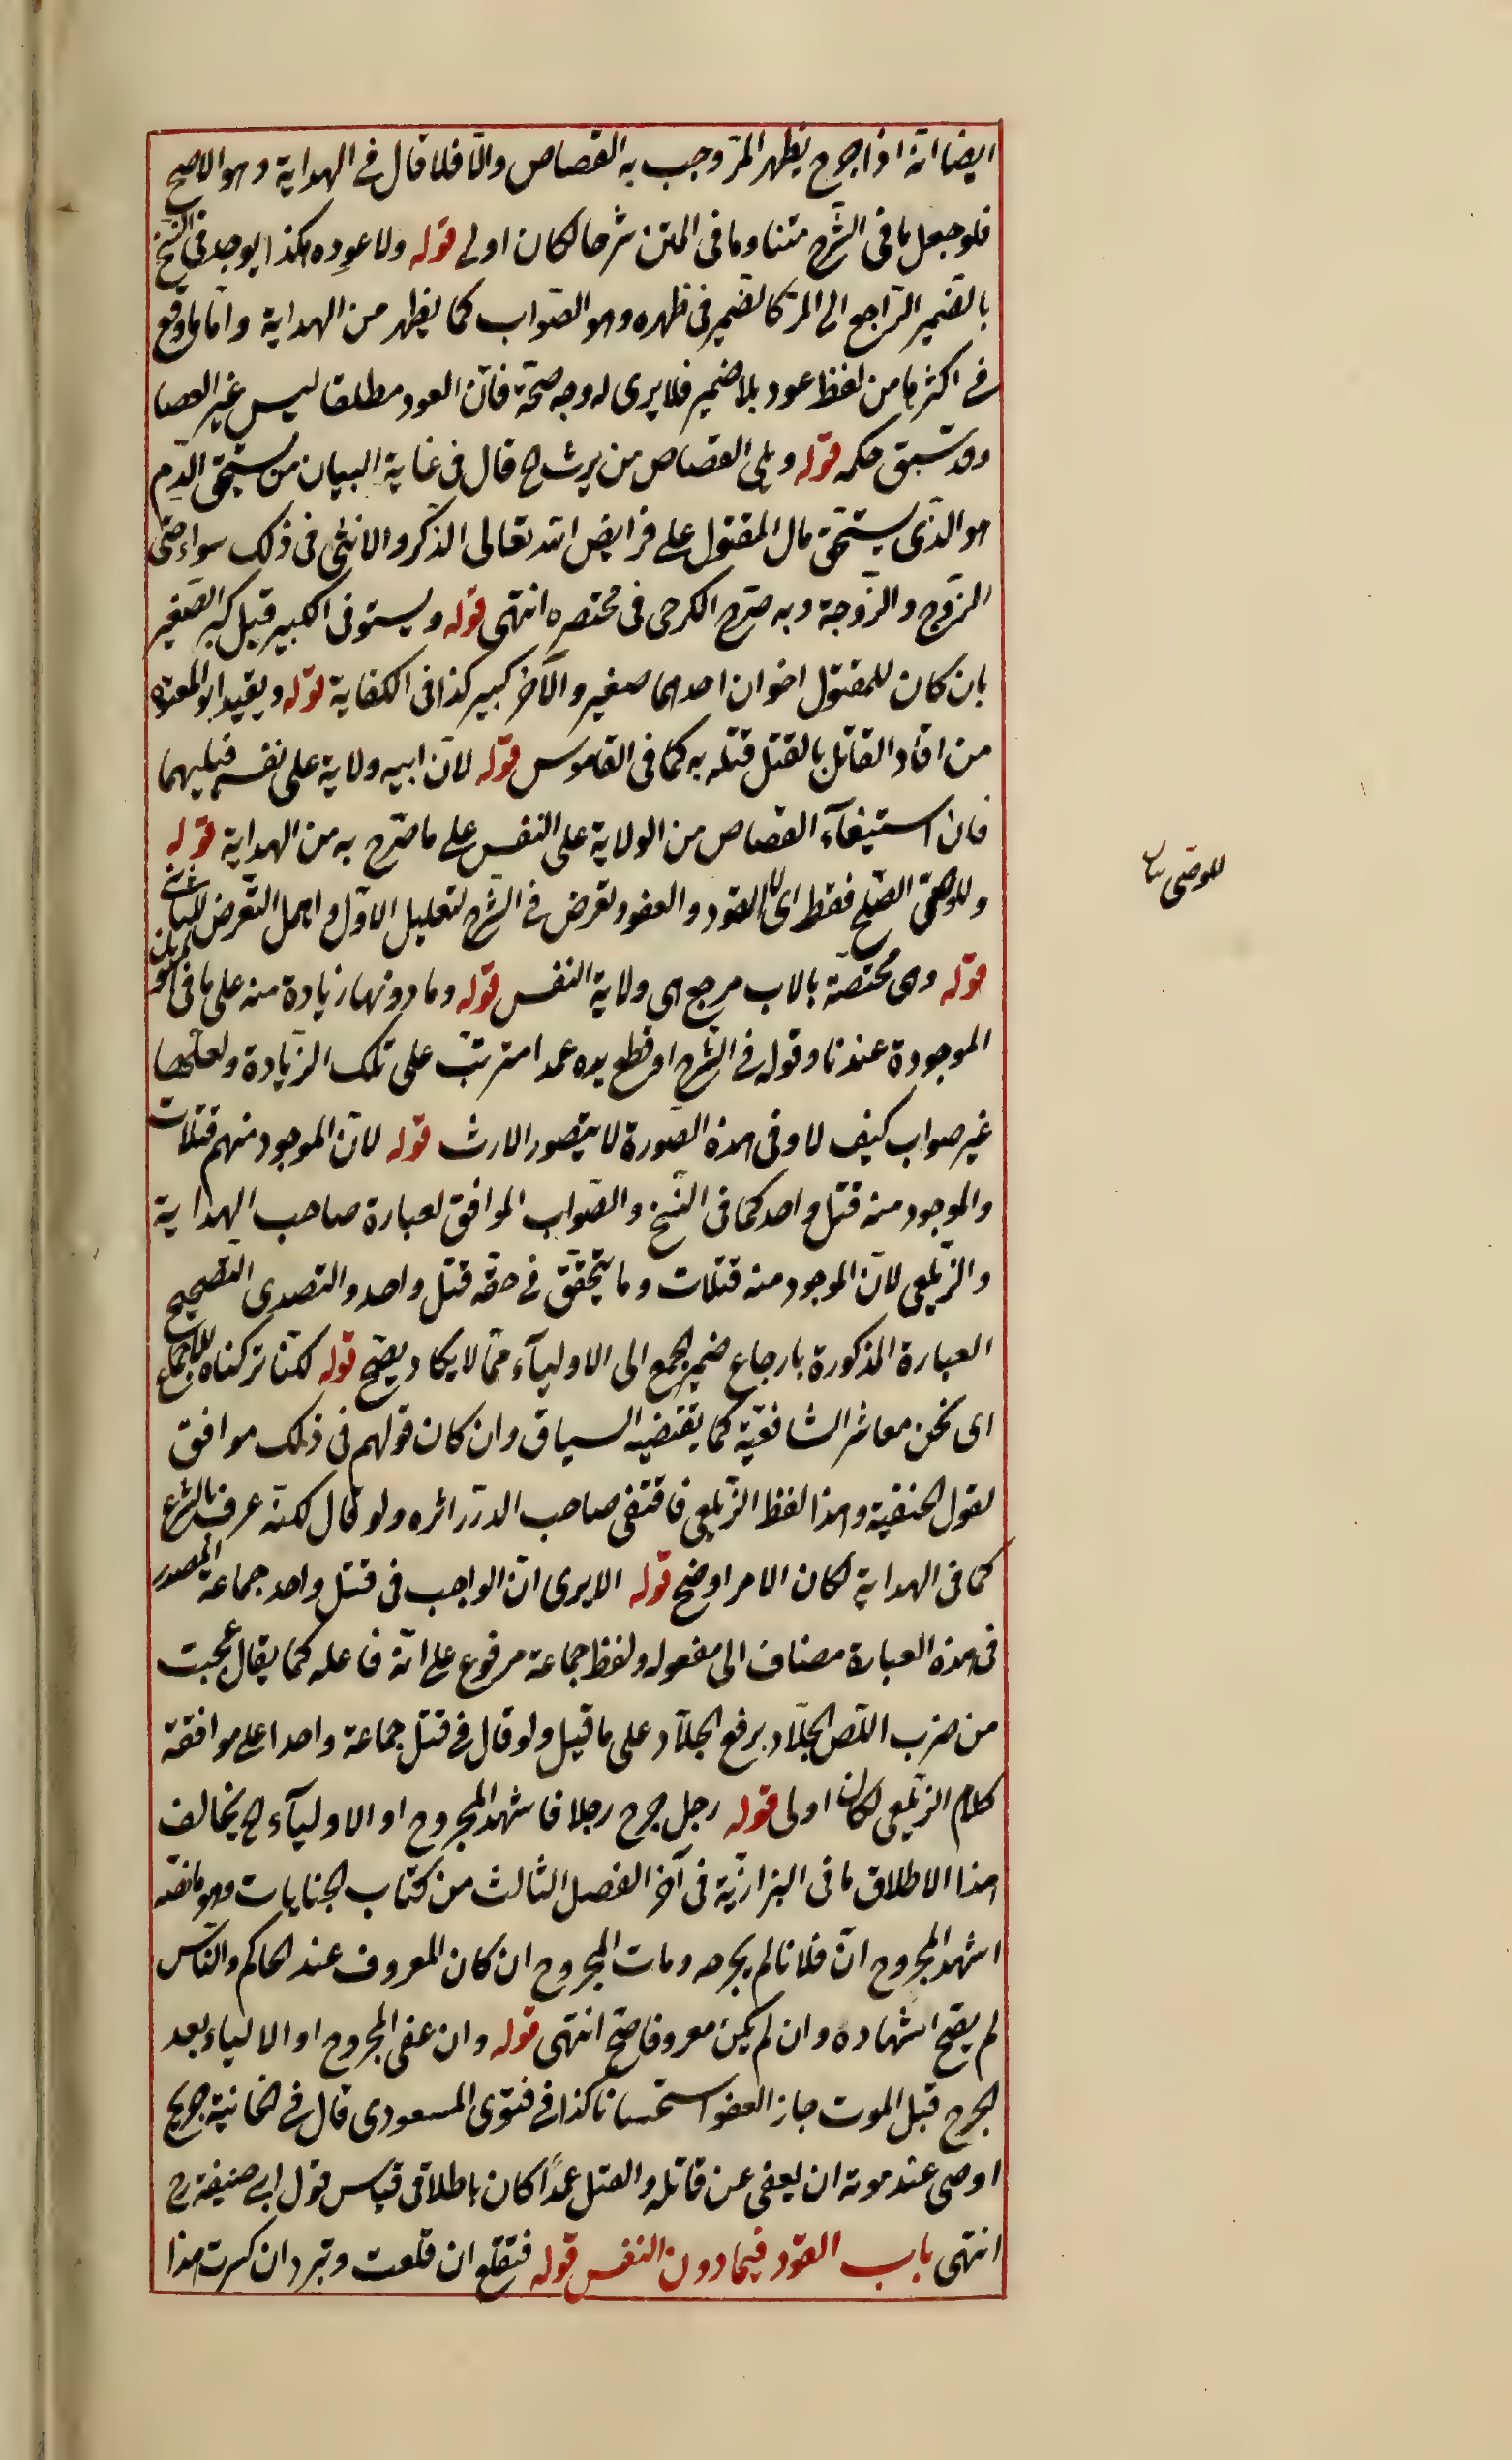 ايضا انه اذا جرح بظهر المرّ وجب به القصاص والّا فلا قال فى الهداية وهو الاصح
فلو جعل ما فى الشّرح متنا وما فى المتن شرحا لكان اولى قوله ولا عوده هكذا يوجد فى النّسخ
بالضّمير الرّاجع الى المرّ كالضّمير فى ظهره وهو الصّواب كما يظهر من الهداية وامّا ما وقع
فى اكثرها من لفظ عود بلا ضمير فلا يرى له وجه صحّة فانّ العود مطلقا ليس غير العصا
وقد سبق حكمه قوله ويلى القصاص من يرث الخ قال فى غاية البيان من يستحقّ الدّم
هو الّذى يستحقّ مال المقتول على فرايض الله تعالى الذّكر والانثى فى ذلك سواء حتّى
الزّوج والزّوجة وبه صرّح الكرخى فى مختصره انتهى قوله ويستوفى الكبير قبل كبر الصّغير
بان كان للمقتول اخوان احدهما صغير والآخر كبير كذا فى الكفاية قوله ويقيد ابو المعتوه
من اقاد القاتل بالقتل قتله به كما فى القاموس قوله لانّ لابيه ولاية على نفسه فيليهما
فان استيفآء القصاص من الولاية على النفس على ما صرّح به من الهداية قوله
وللوصىّ الصّلح فقط اى لا القود والعفو وتعرض فى الشّرح لتعليل الاوّل واهمل التّعرض للثانى
قوله وهى مختصّة بالاب مرجع هى ولاية النفس قوله وما دونها زيادة منه على ما فى
الموجودة عندنا وقوله فى الشّرح او قطع يده عمدا مترتّب على تلك الزّيادة ولعلّها
غير صواب كيف لا وفى هذه الصّورة لا يتصور الارث قوله لانّ الموجود منهم قتلات
والموجود منه قتل واحد كما فى النّسخ والصّواب الموافق لعبارة صاحب الهداية
والزّيلعى لانّ الموجود منه قتلات وما يتحقّق فى حقّه قتل واحد والتصدى لتصحيح
العبارة المذكورة بارجاع ضمير الجمع الى الاوليآء ممّا لا يكاد يصّح قوله لكنّا تركناه للاجماع
اى نحن معاشر الشافعيّة كما يقتضيه السياق وان كان قولهم فى ذلك موافق
لقول الحنفية وهذا لفظ الزّيلعى فاقتفى صاحب الدّرر اثره ولو قال لكنّه عرف بالشّرع
كما فى الهداية لكان الامر اوضح قوله الا يرى انّ الواجب فى قتل واحد جماعة المصدر
فى هذه العبارة مضاف الى مفعوله ولفظ جماعة مرفوع على انّه فاعله كما يقال عجبت
من ضرب اللّص الجلّاد برفع الجلّاد على ما قيل ولو قال فى قتل جماعة واحدا على موافقة
كلام الزّيلعى لكان اولى قوله رجل جرح رجلا فاشهد المجروح او الاوليآء الخ يخالف
هذا الاطلاق ما فى البزازيّة فى آخر الفصل الثالث من كتاب الجنايات وهو ما نصّه
اشهد المجروح انّ فلانا لم يجرحه ومات المجروح ان كان المعروف عند الحاكم والنّاس
لم يصّح اشهاده وان لم يكن معروفا صّح انتهى قوله وان عفى المجروح او الاولياء بعد
الجرح قبل الموت جاز العفو استحسانا كذا فى فتوى المسعودى قال فى الخانية جريح
اوصى عند موته ان يعفى عن قاتله والقتل عمدًا كان باطلا فى قياس قول ابى حنيفة رح
انتهى باب القود فيما دون النفس قوله فتقلع ان قلعت وتبرد ان كسرت هذا
للوصى